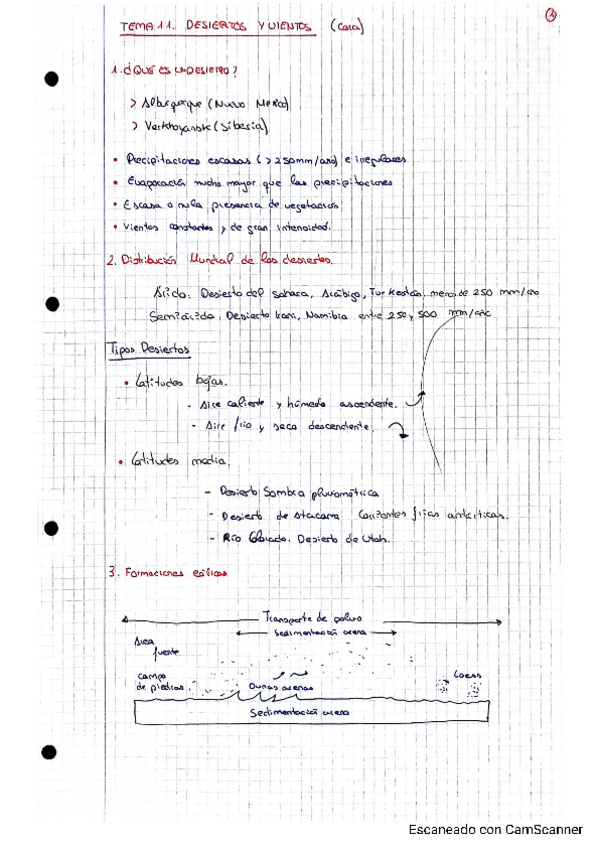 TEMA 11. DESIERTOS Y VIENTOS (Cara)
1. ¿QUÉ ES UN DESIERTO?
> Alburquerque (Nuevo Mexico)
> Verkhoyansk (Siberia)
• Precipitaciones escasas (>250mm/año) e irregulares
• Evaporación mucho mayor que las precipitaciones
• Escasa o nula presencia de vegetación
• Vientos constantes y de gran intensidad.
2. Distribución Mundial de los desiertos.
Árido. Desierto del sahara, Arábigo, Turkestán, menos de 250 mm/año
Semiárido. Desierto Namibia entre 250 y 500 mm/año
Tipos Desiertos
• Latitudes bajas.
- Aire caliente y húmedo ascendente.
- Aire frío y seco descendente.
• Latitudes media.
- Desierto Sombra pluviométrica
- Desierto de Atacama Corrientes frías antárticas.
- Río Colorado. Desierto de Utah.
3. Formaciones eólicas
Transporte de polvo
Sedimentación arena
Área
fuente
campo
de piedras
Dunas arenas
Loess
Sedimentación arena
Escaneado con CamScanner